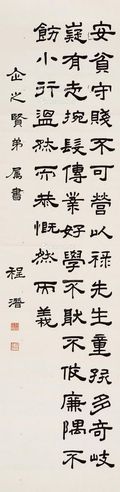 安貧守賤不可營以祿先生童孩多奇岐
嶷有志捥髮傳業好學不猒不攸廉隅不
飭小行溫然而恭慨然而義
企之賢弟屬書
程潛